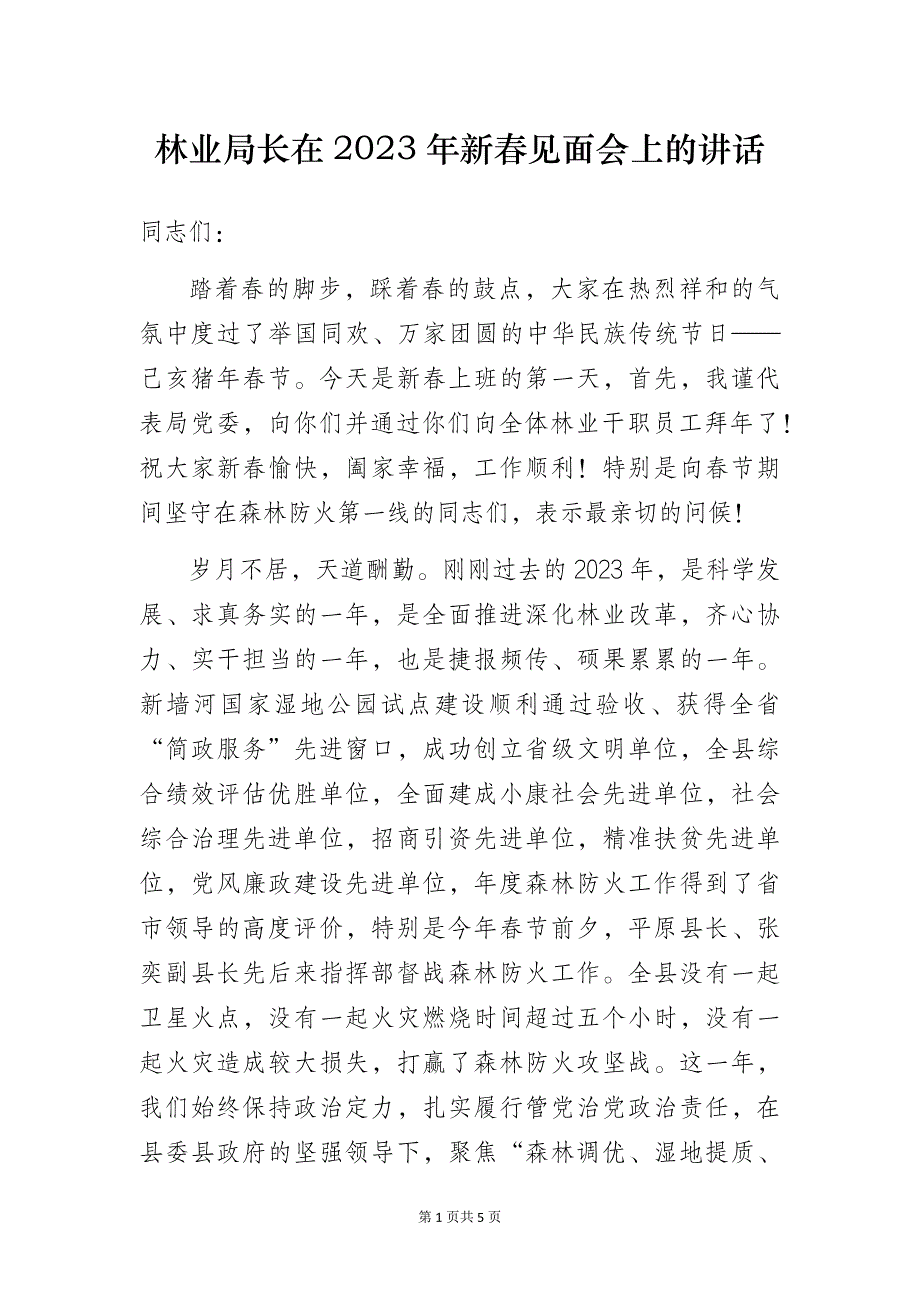 林业局长在 2023 年新春见面会上的讲话
同志们：
踏着春的脚步，踩着春的鼓点，大家在热烈祥和的气
氛中度过了举国同欢、万家团圆的中华民族传统节日——
己亥猪年春节。今天是新春上班的第一天，首先，我谨代
表局党委，向你们并通过你们向全体林业干职员工拜年了！
祝大家新春愉快，阖家幸福，工作顺利！特别是向春节期
间坚守在森林防火第一线的同志们，表示最亲切的问候！
岁月不居，天道酬勤。刚刚过去的 2023 年，是科学发
展、求真务实的一年，是全面推进深化林业改革，齐心协
力、实干担当的一年，也是捷报频传、硕果累累的一年。
新墙河国家湿地公园试点建设顺利通过验收、获得全省
“简政服务”先进窗口，成功创立省级文明单位，全县综
合绩效评估优胜单位，全面建成小康社会先进单位，社会
综合治理先进单位，招商引资先进单位，精准扶贫先进单
位，党风廉政建设先进单位，年度森林防火工作得到了省
市领导的高度评价，特别是今年春节前夕，平原县长、张
奕副县长先后来指挥部督战森林防火工作。全县没有一起
卫星火点，没有一起火灾燃烧时间超过五个小时，没有一
起火灾造成较大损失，打赢了森林防火攻坚战。这一年，
我们始终保持政治定力，扎实履行管党治党政治责任，在
县委县政府的坚强领导下，聚焦“森林调优、湿地提质、
第 1 页共 5 页